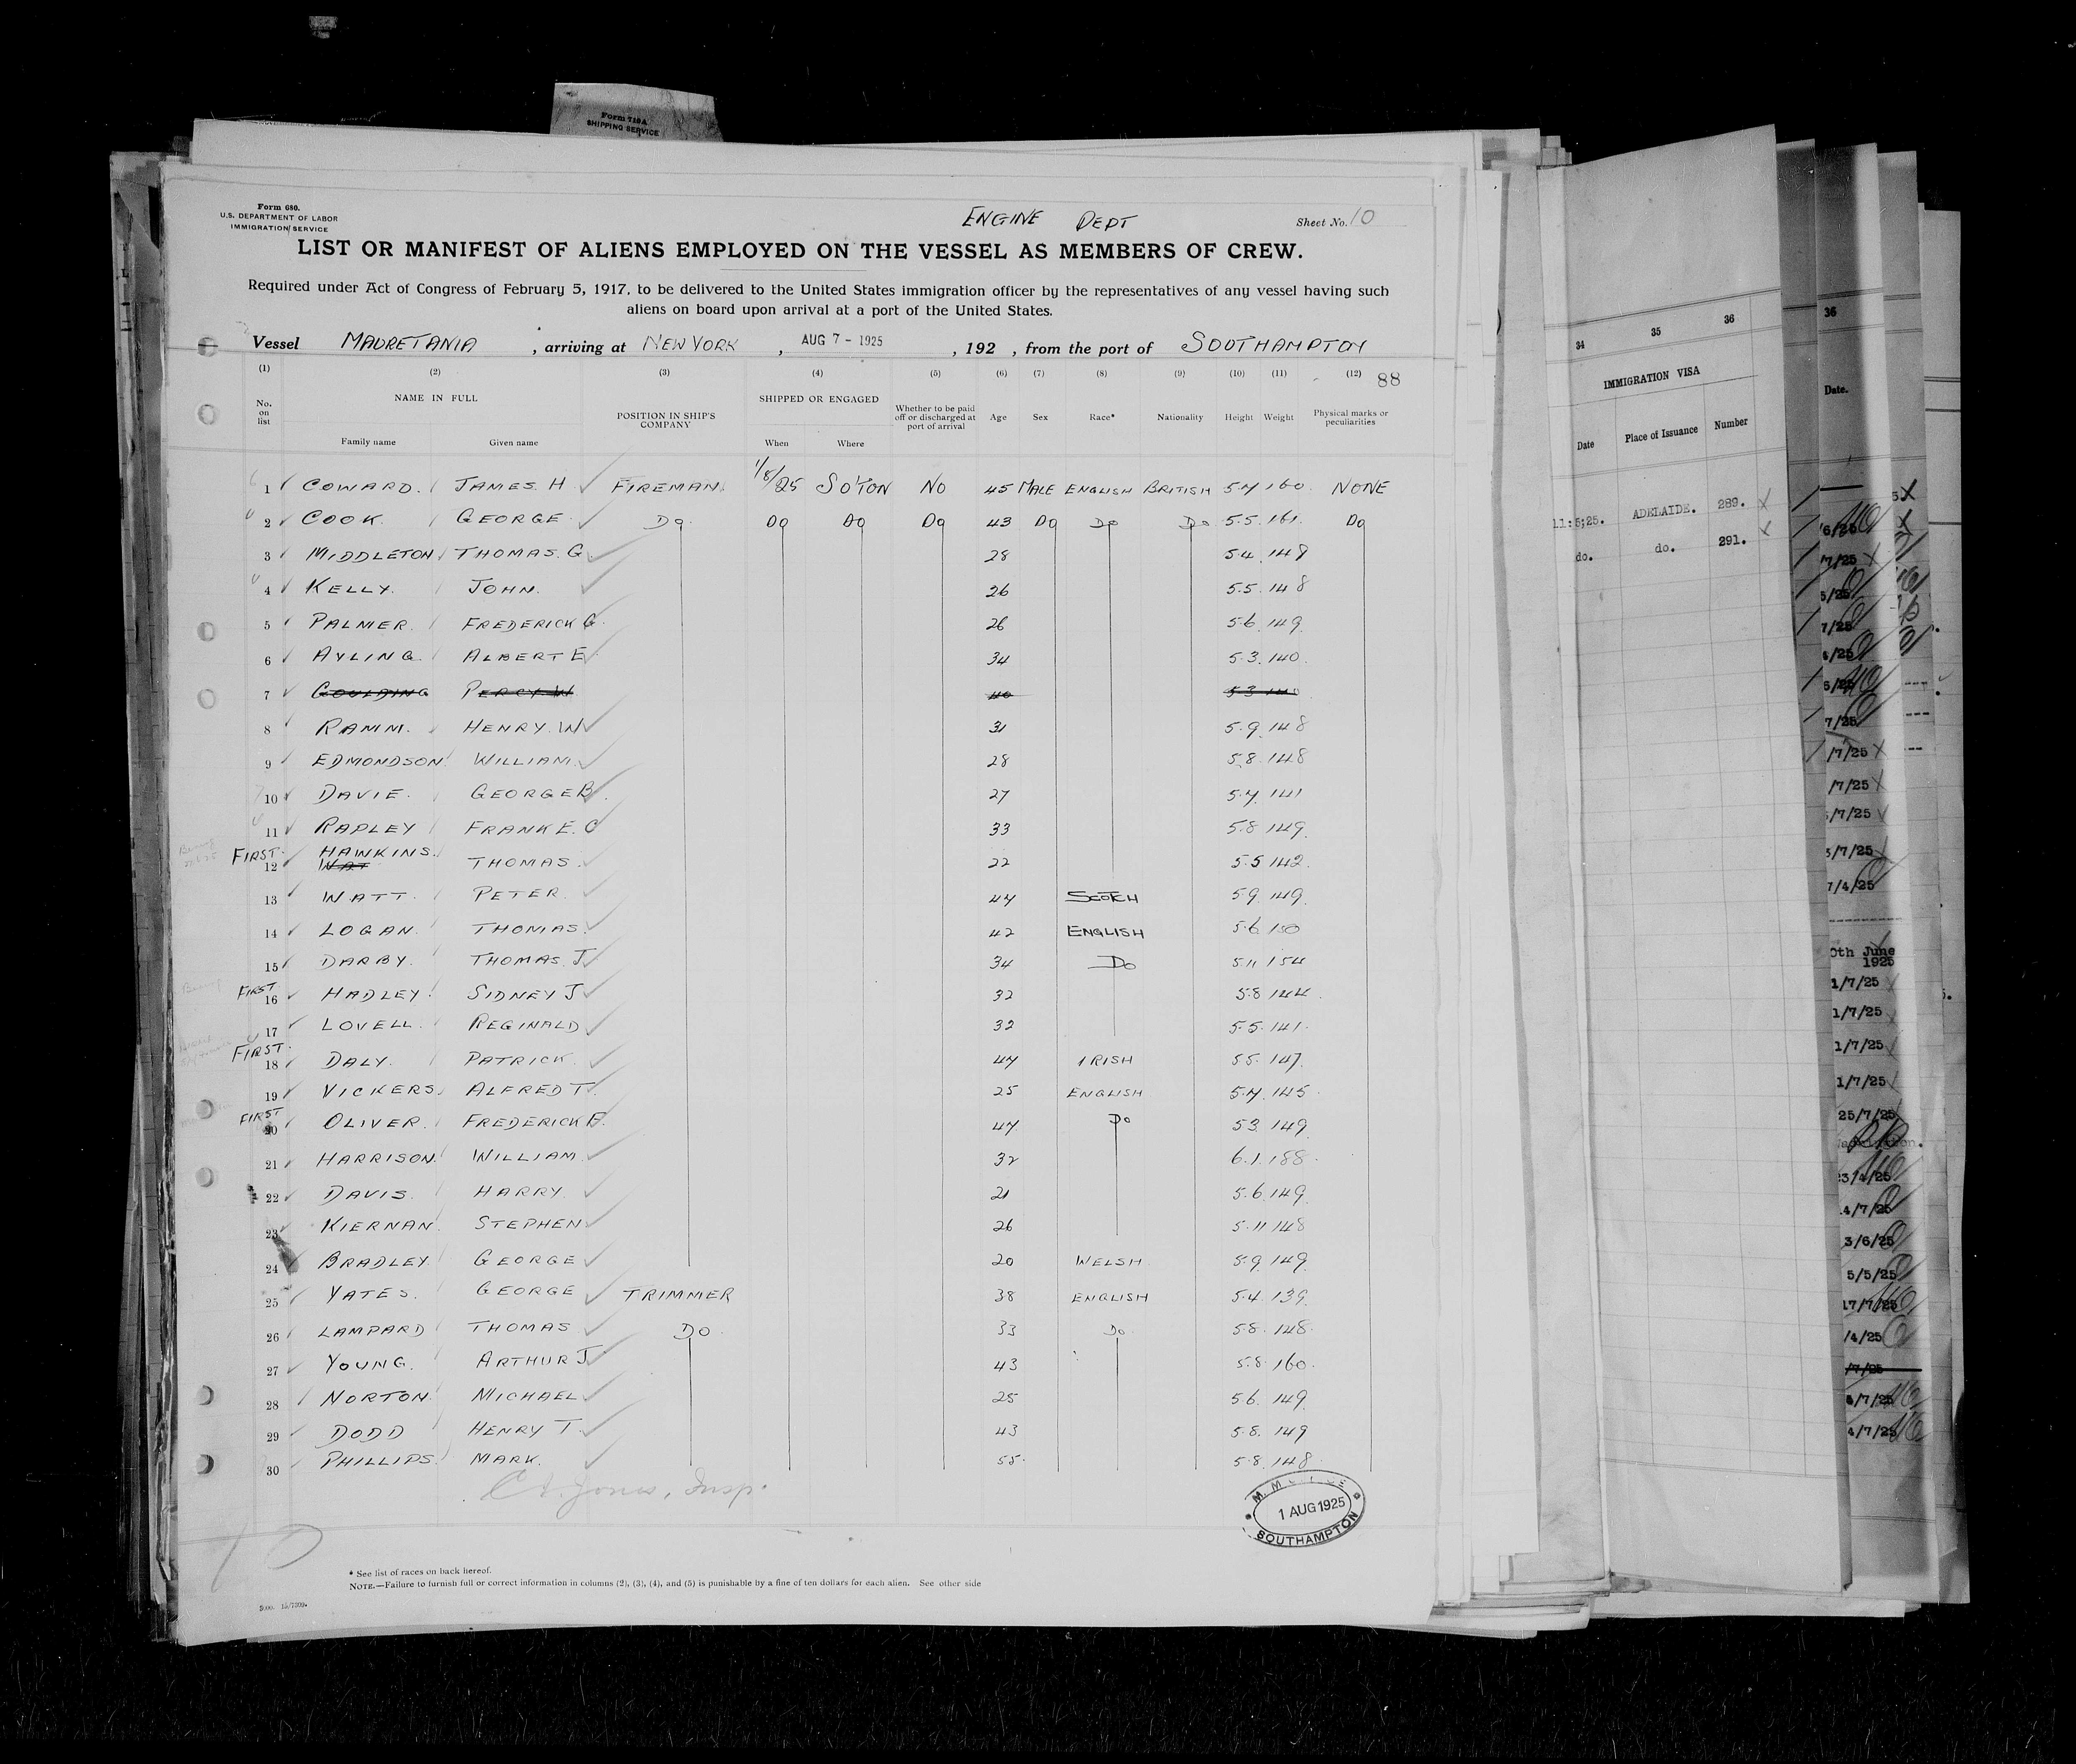 Form 710A
SHIPPING SERVICE
Form 680.
U.S. DEPARTMENT OF LABOR
IMMIGRATION SERVICE
ENGINE DEPT
Sheet No. 10
LIST OR MANIFEST OF ALIENS EMPLOYED ON THE VESSEL AS MEMBERS OF CREW.
Required under Act of Congress of February 5, 1917, to be delivered to the United States immigration officer by the representatives of any vessel having such
aliens on board upon arrival at a port of the United States.
Vessel MAURETANIA , arriving at NEW YORK , AUG 7 - 1925 , 192 , from the port of SOUTHAMPTON
(1) (2) (3) (4) (5) (6) (7) (8) (9) (10) (11) (12) 88
No. on list NAME IN FULL POSITION IN SHIP'S COMPANY SHIPPED OR ENGAGED Whether to be paid off or discharged at port of arrival Age Sex Race* Nationality Height Weight Physical marks or peculiarities
Family name Given name When Where
1 COWARD. JAMES H FIREMAN. 1/8/25 SO'TON NO 45 MALE ENGLISH BRITISH 5.7 160 NONE
2 COOK. GEORGE. Do Do Do Do 43 Do Do Do 5.5. 161. Do
3 MIDDLETON THOMAS. G. 28 5.4. 149
4 KELLY. JOHN. 26 5.5. 148
5 PALMER. FREDERICK G. 26 5.6. 149.
6 AYLING. ALBERT E 34 5.3. 140.
7 GOULDING PERCY. W 40 5.3 140
8 RAMM. HENRY. W 31 5.9. 148
9 EDMONDSON WILLIAM. 28 5.8. 148
10 DAVIE. GEORGE B. 27 5.7. 141
11 RADLEY FRANK E. C 33 5.8 149.
FIRST. 12 HAWKINS. WAT THOMAS. 22 5.5 142.
13 WATT. PETER. 44 SCOTCH 5.9. 149.
14 LOGAN. THOMAS. 42 ENGLISH 5.6. 150
15 DARBY. THOMAS. J. 34 Do 5.11 154
FIRST 16 HADLEY. SIDNEY J 32 5.8 144.
17 LOVELL. REGINALD 32 5.5. 141.
FIRST. 18 DALY. PATRICK. 47 IRISH 5.5. 147.
19 VICKERS. ALFRED T. 25 ENGLISH 5.7. 145.
FIRST 20 OLIVER. FREDERICK F. 47 Do 5.3. 149.
21 HARRISON. WILLIAM. 32 6.1. 188.
22 DAVIS. HARRY. 21 5.6. 149.
23 KIERNAN. STEPHEN 26 5.11 148
24 BRADLEY. GEORGE 20 WELSH. 5.9. 149.
25 YATES. GEORGE TRIMMER 38 ENGLISH 5.4. 139.
26 LAMPARD THOMAS Do. 33 Do. 5.8. 148.
27 YOUNG. ARTHUR J. 43 5.8. 160.
28 NORTON. MICHAEL. 25 5.6. 149.
29 DODD HENRY T. 43 5.8. 149
30 PHILLIPS. MARK. 55. 5.8. 148.
Jones, Insp.
1 AUG 1925
SOUTHAMPTON
10
* See list of races on back hereof.
NOTE.—Failure to furnish full or correct information in columns (2), (3), (4), and (5) is punishable by a fine of ten dollars for each alien. See other side
34 35 36
IMMIGRATION VISA
Date Place of Issuance Number
11:5;25. ADELAIDE. 289. X
do. do. 291. X
36
Date.
6/25
7/25
5/25
7/25
6/25
7/25
/7/25
/7/25
/7/25
3/7/25
7/4/25
0th June
1925
1/7/25
1/7/25
1/7/25
1/7/25
25/7/25
23/4/25
4/7/25
3/6/25
5/5/25
17/7/25
/4/25
/7/25
4/7/25
4/7/25